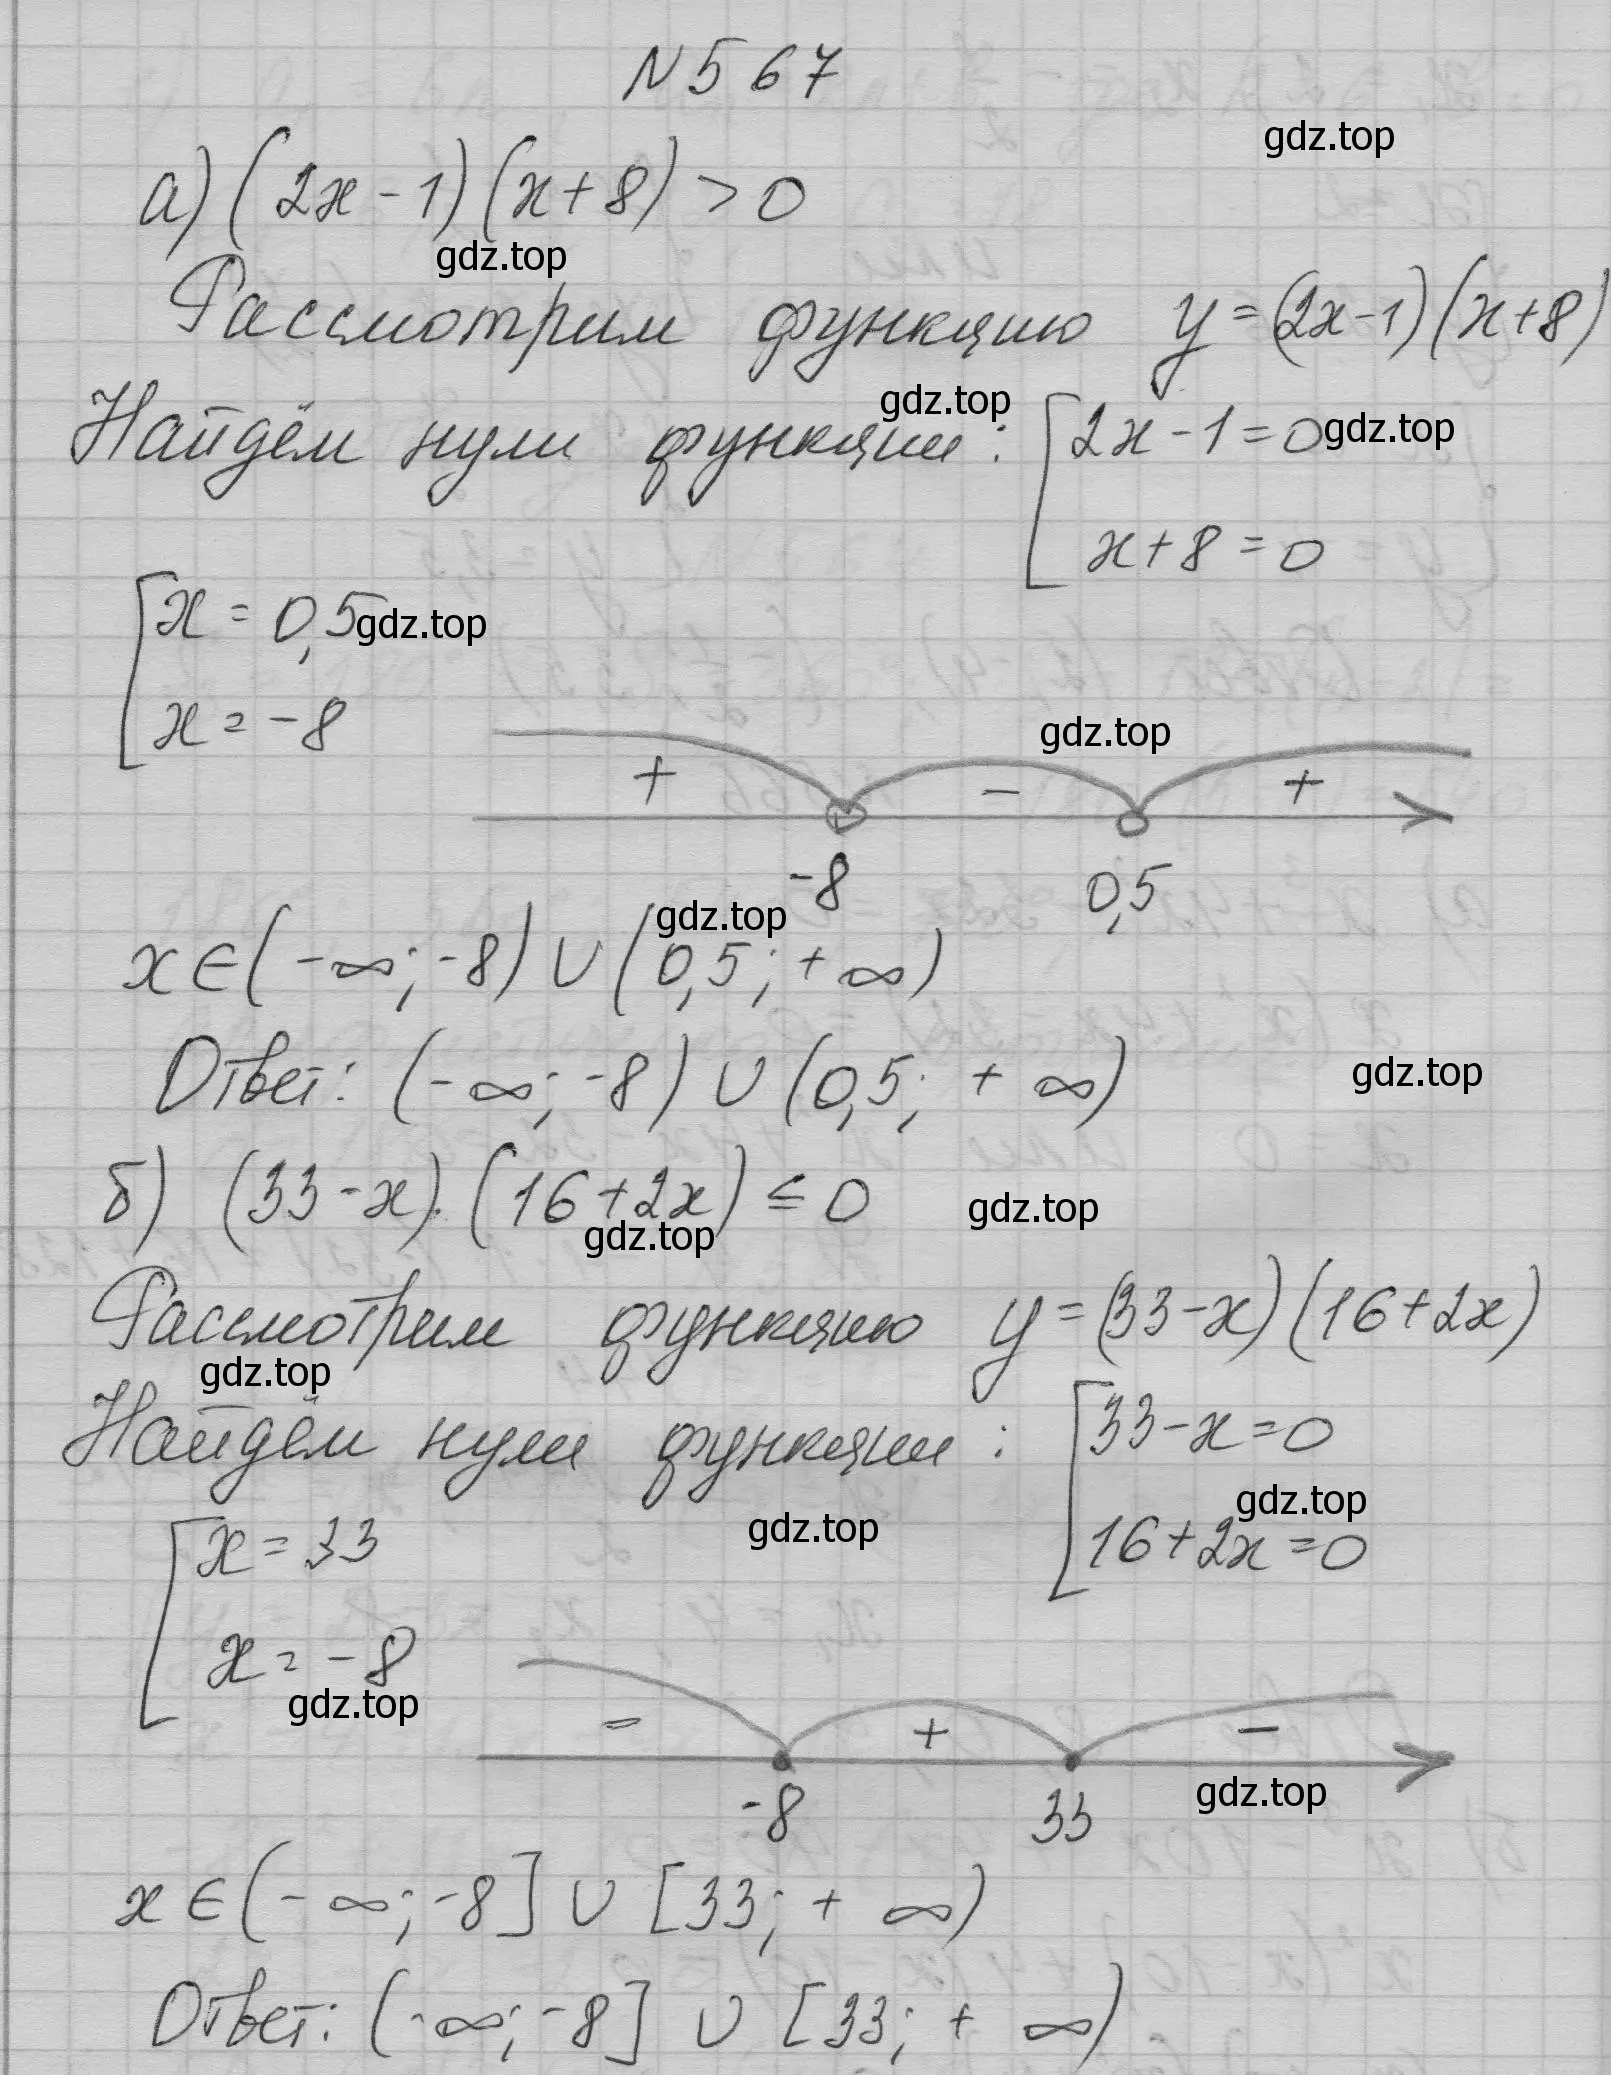 N 567
gdz.top
а) (2x-1)(x+8) > 0
gdz.top
Рассмотрим функцию y=(2x-1)(x+8)
gdz.top
Найдём нули функции: [2x-1=0
gdz.top
x+8=0
[x=0,5
gdz.top
x=-8
gdz.top
+ - +
-8 0,5
gdz.top
x∈(-∞;-8)∪(0,5;+∞)
Ответ: (-∞;-8)∪(0,5;+∞)
gdz.top
б) (33-x)·(16+2x) ≤ 0
gdz.top
gdz.top
Рассмотрим функцию y=(33-x)(16+2x)
gdz.top
Найдём нули функции: [33-x=0
gdz.top
gdz.top
16+2x=0
[x=33
x=-8
gdz.top
- + -
gdz.top
-8 33
x∈(-∞;-8]∪[33;+∞)
Ответ: (-∞;-8]∪[33;+∞)